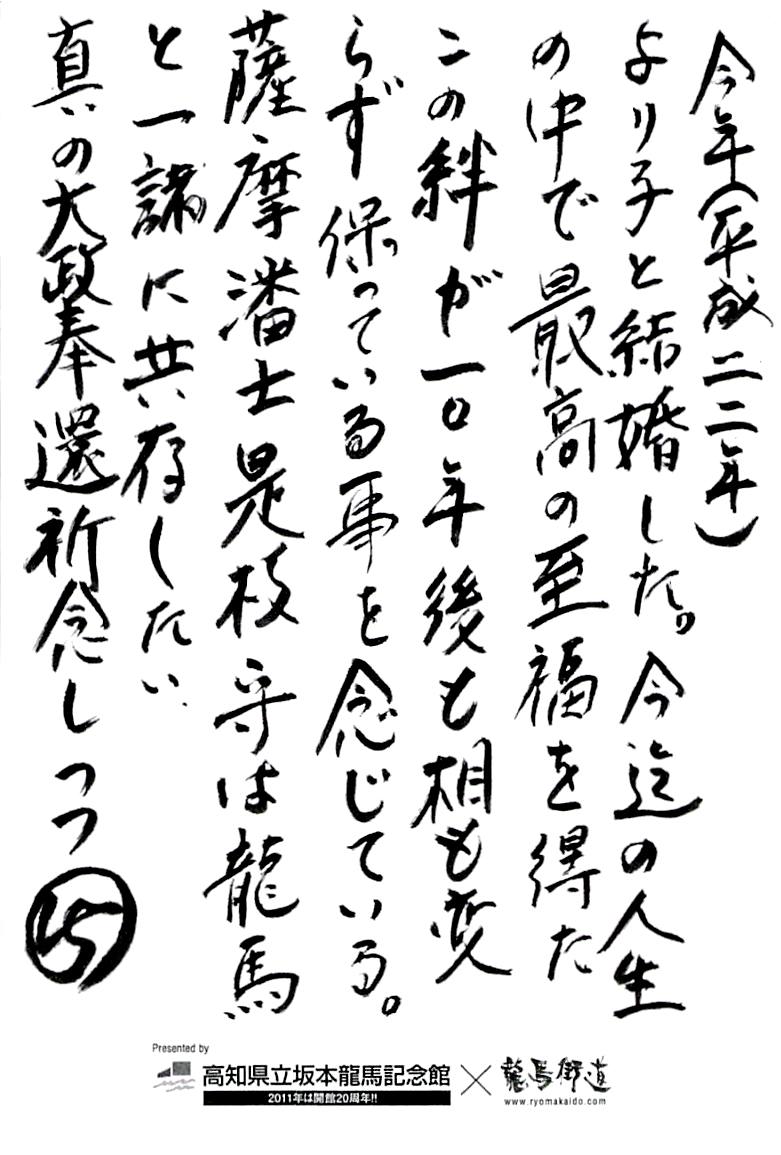 今年(平成二二年)
より子と結婚した。今迄の人生
の中で最高の至福を得た
この絆が一〇年後も相も変
らず保っている事を念じている。
薩摩潘士是枝守は龍馬
と一諸に共存したい
真の大政奉還祈念しつつ
Presented by
高知県立坂本龍馬記念館
2011年は開館20周年!!
×
龍馬街道
www.ryomakaido.com